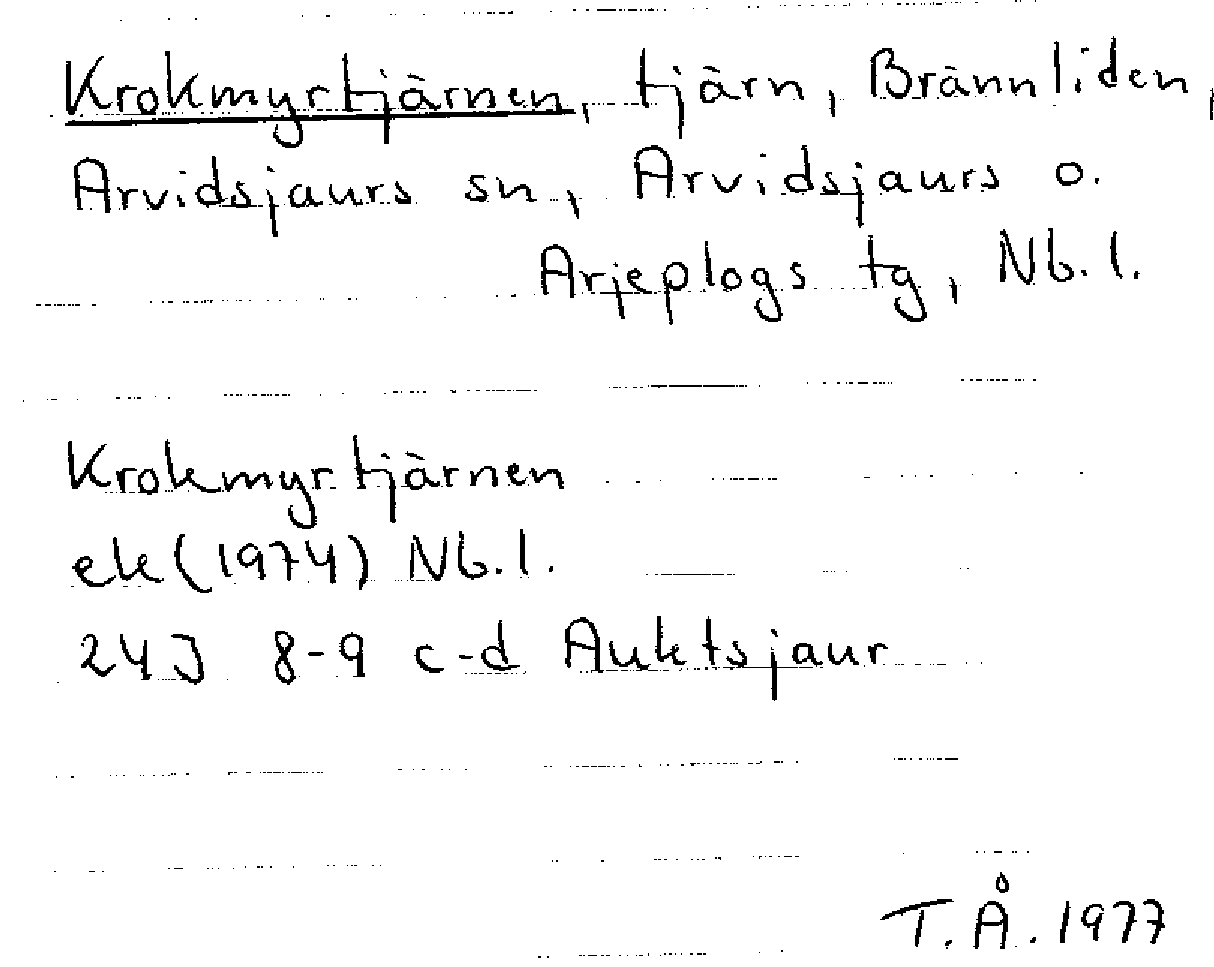 Krokmyrtjärnen, tjärn, Brännliden,
Arvidsjaurs sn, Arvidsjaurs o.
Arjeplogs tg, Nb. l.
Krokmyrtjärnen
ek (1974) Nb. l.
24J 8-9 c-d Auktsjaur
T.Å. 1977